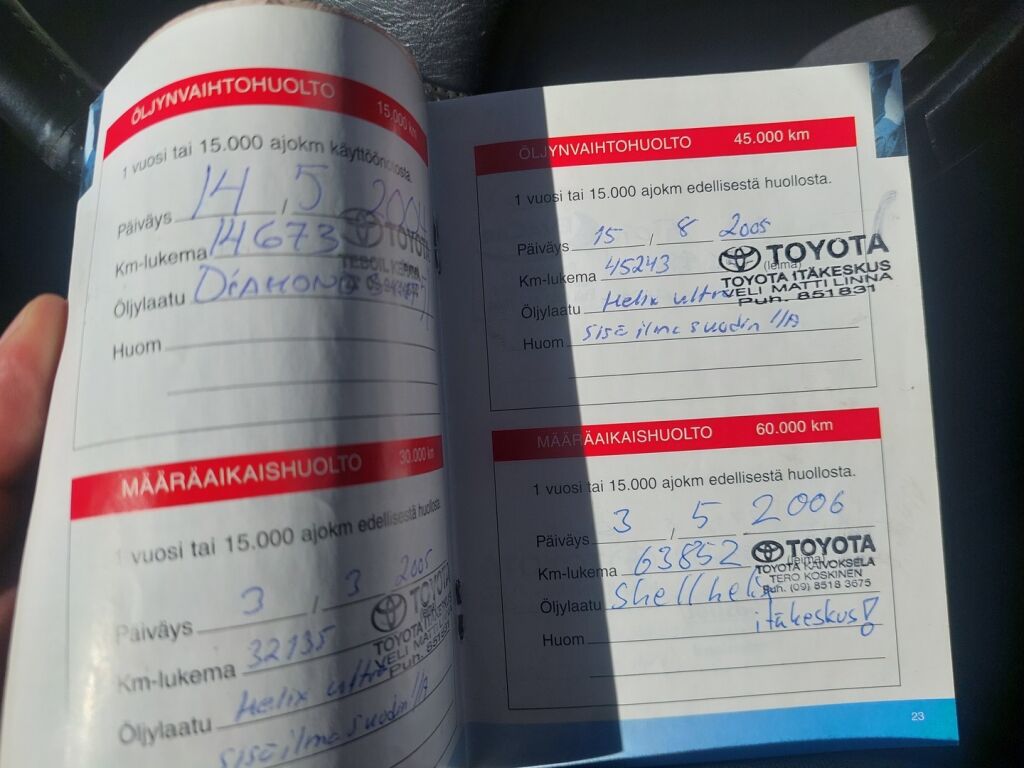 ÖLJYNVAIHTOHUOLTO 15.000 km
1 vuosi tai 15.000 ajokm käyttöönotosta.
Päiväys 14 / 5 2004
Km-lukema 14673
TOYOTA
Öljylaatu DiAMOND
Huom
MÄÄRÄAIKAISHUOLTO 30.000 km
1 vuosi tai 15.000 ajokm edellisestä huollosta.
Päiväys 3 / 3 2005
Km-lukema 32135
TOYOTA
TOYOTA
VELI MATTI
Puh. 851831
Öljylaatu Helix ultra
sisäilma suodin I/A
ÖLJYNVAIHTOHUOLTO 45.000 km
1 vuosi tai 15.000 ajokm edellisestä huollosta.
Päiväys 15 / 8 2005
Km-lukema 45243
(leima)
TOYOTA
TOYOTA ITÄKESKUS
VELI MATTI LINNA
Puh. 851831
Öljylaatu Helix ultra
Huom sisäilma suodin I/A
MÄÄRÄAIKAISHUOLTO 60.000 km
1 vuosi tai 15.000 ajokm edellisestä huollosta.
Päiväys 3 / 5 2006
Km-lukema 63852
(leima)
TOYOTA
TOYOTA KAIVOKSELA
TERO KOSKINEN
Puh. (09) 8518 3675
Öljylaatu Shell helix
itäkeskus!
Huom
23